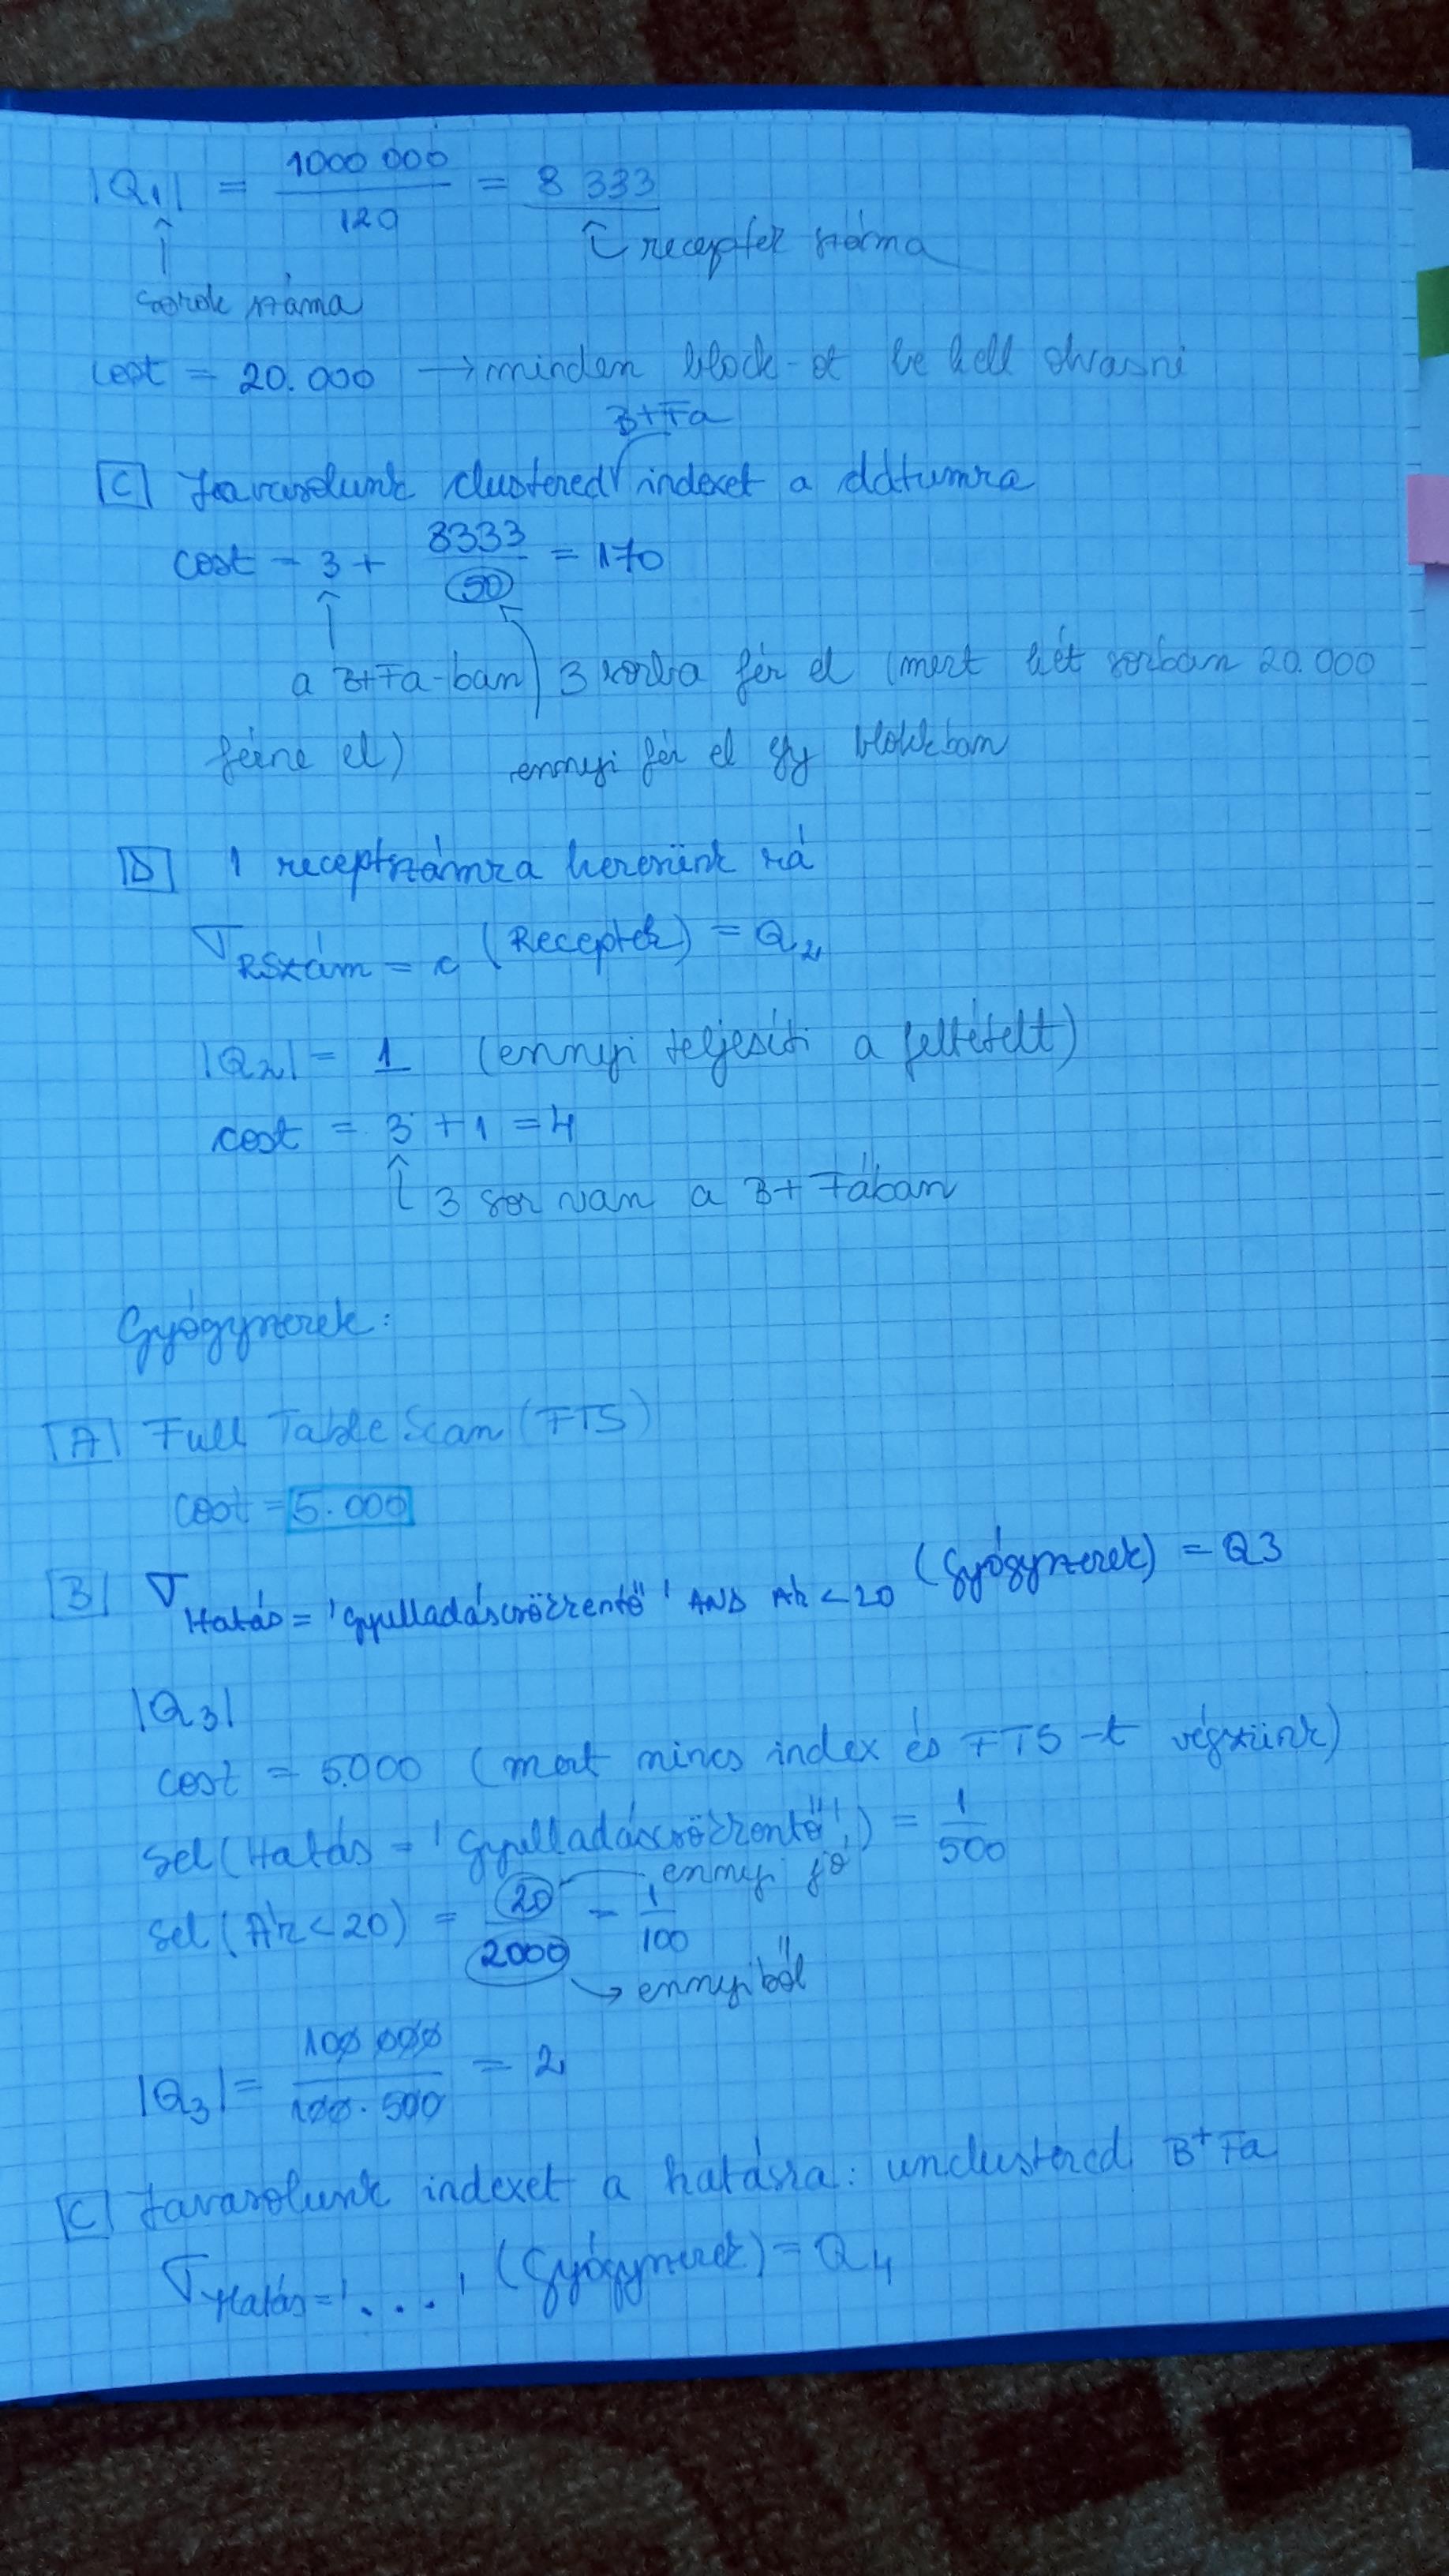 |Q₁| = 1000 000 / 120 = 8 333
↑ receptek száma
↑ sorok száma
cost = 20.000 → minden block-ot be kell olvasni
B+Fa
[C] Javasolunk clustered indexet a dátumra
cost = 3 + 8333 / 50 = 170
a B+Fa-ban 3 sorba fér el (mert két sorban 20.000
férne el) ennyi fér el egy blokkban
[D] 1 receptszámra keresünk rá
σ RSzám = c (Receptek) = Q₂
|Q₂| = 1 (ennyi teljesíti a feltételt)
cost = 3 + 1 = 4
↑ 3 sor van a B+ Fában
Gyógyszerek:
[A] Full Table Scan (FTS)
cost = 5.000
[B] σ Hatás = 'Gyulladáscsökkentő' AND Ár < 20 (Gyógyszerek) = Q3
|Q₃|
cost = 5.000 (mert nincs index és FTS-t végzünk)
sel(Hatás = 'Gyulladáscsökkentő') = 1 / 500
sel(Ár < 20) = 20 / 2000 = 1 / 100
ennyi jó
→ ennyiből
|Q₃| = 100 000 / 100 · 500 = 2
[C] Javasolunk indexet a hatásra: unclustered B⁺Fa
σ Hatás = '...' (Gyógyszerek) = Q₄